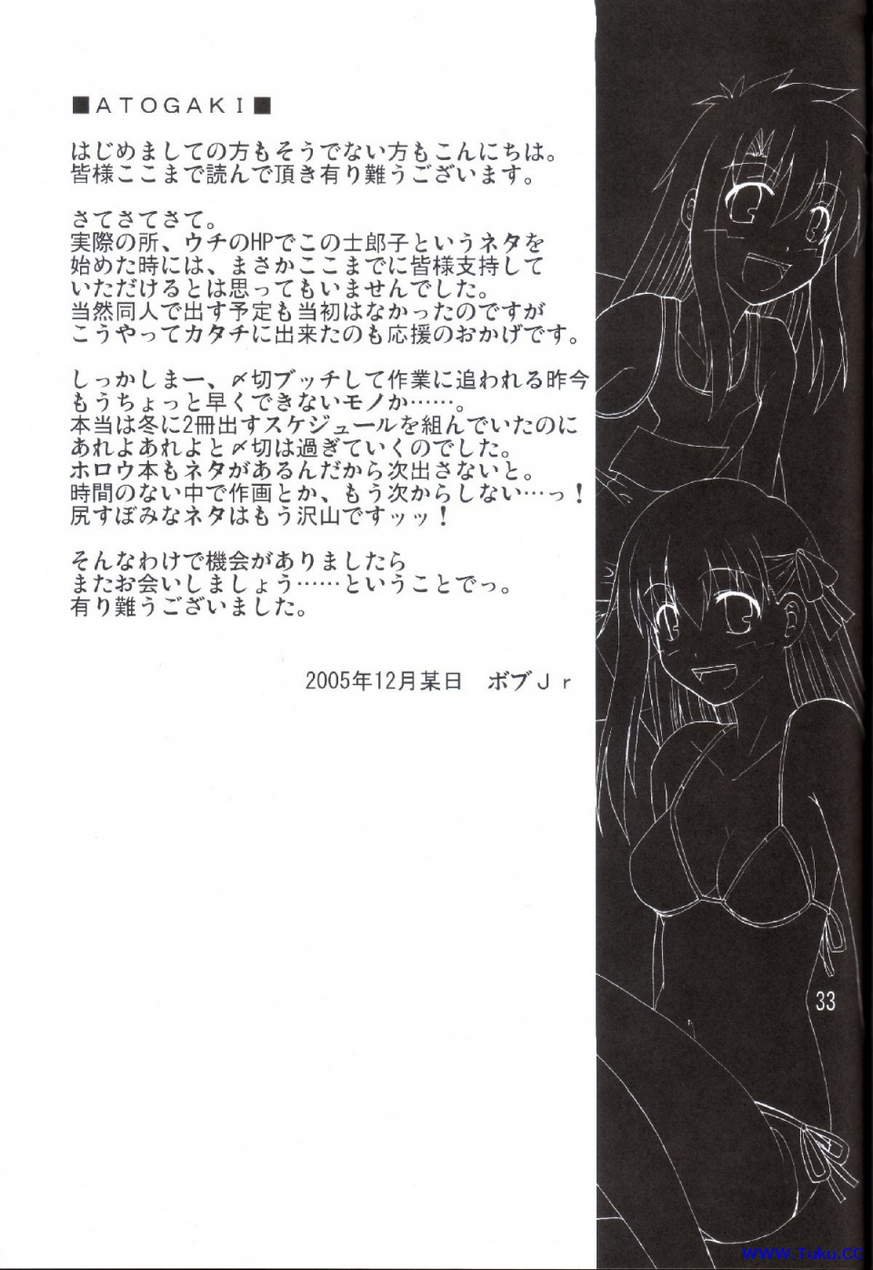 ■ATOGAKI■
はじめましての方もそうでない方もこんにちは。
皆様ここまで読んで頂き有り難うございます。
さてさてさて。
実際の所、ウチのHPでこの士郎子というネタを
始めた時には、まさかここまでに皆様支持して
いただけるとは思ってもいませんでした。
当然同人で出す予定も当初はなかったのですが
こうやってカタチに出来たのも応援のおかげです。
しっかしまー、〆切ブッチして作業に追われる昨今
もうちょっと早くできないモノか……。
本当は冬に2冊出すスケジュールを組んでいたのに
あれよあれよと〆切は過ぎていくのでした。
ホロウ本もネタがあるんだから次出さないと。
時間のない中で作画とか、もう次からしない…っ！
尻すぼみなネタはもう沢山ですッッ！
そんなわけで機会がありましたら
またお会いしましょう……ということでっ。
有り難うございました。
2005年12月某日　ボブJr
33
WWW.Tuku.CC